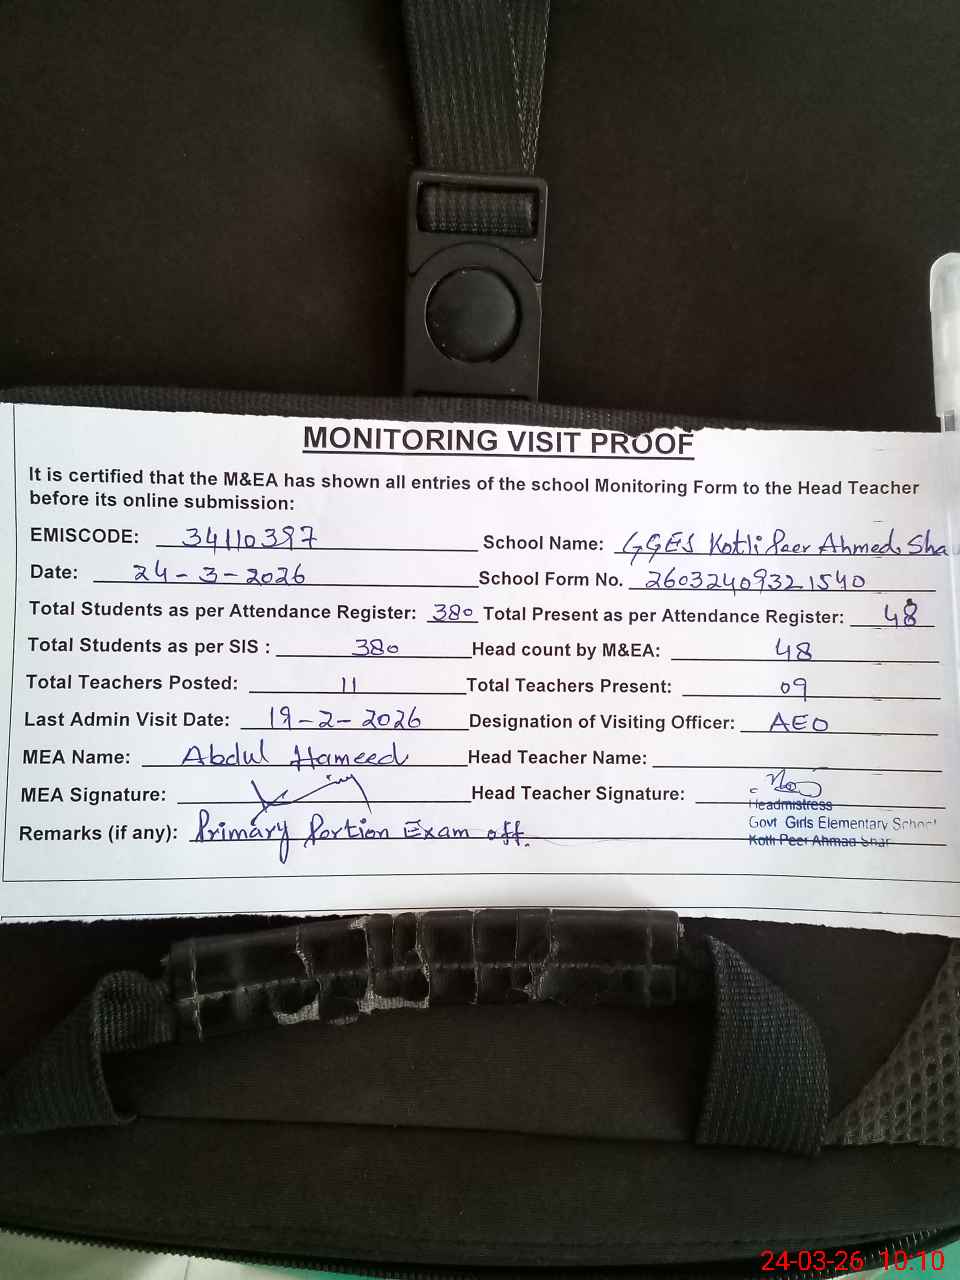 MONITORING VISIT PROOF
It is certified that the M&EA has shown all entries of the school Monitoring Form to the Head Teacher
before its online submission:
EMISCODE: 34110397 School Name: GGES Kotli Peer Ahmed Sha
Date: 24-3-2026 School Form No. 26032409321540
Total Students as per Attendance Register: 380 Total Present as per Attendance Register: 48
Total Students as per SIS : 380 Head count by M&EA: 48
Total Teachers Posted: 11 Total Teachers Present: 09
Last Admin Visit Date: 19-2-2026 Designation of Visiting Officer: AEO
MEA Name: Abdul Hameed Head Teacher Name:
MEA Signature: Head Teacher Signature:
Headmistress
Remarks (if any): Primary Portion Exam off. Govt Girls Elementary School
Kotli Peer Ahmad Shah
24-03-26 10:10